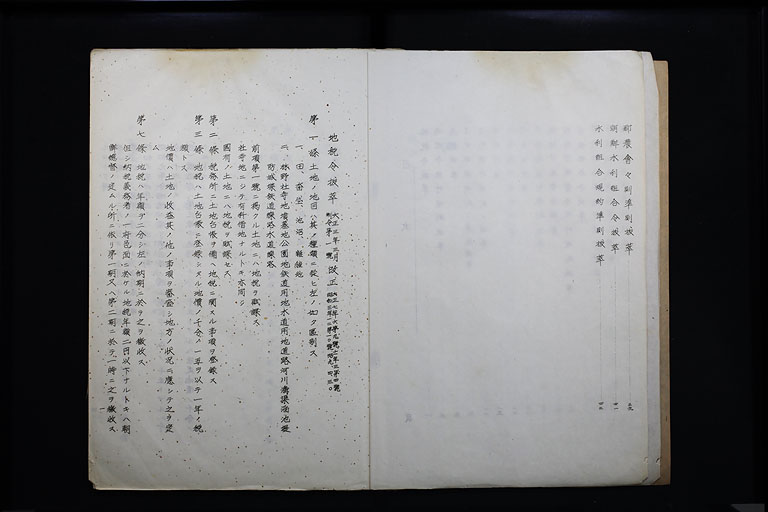 郡農會々則準則拔萃 三九
朝鮮水利組合令拔萃 四一
水利組合規約準則拔萃 四三
地稅令拔萃 大正三年三月制令第一號 改正
第一條 土地ノ地目ハ其ノ種類ニ從ヒ左ノ如ク區別ス
一、田、畓、垈、池沼、雜種地
二、林野、社寺地、墳墓地、公園地、鐵道用地、水道用地、道路、河川、溝渠、溜池、堤
防、城堞、鐵道線路、水道線路
前項第一號ニ揭クル土地ニハ地稅ヲ賦課ス
社寺地ニシテ有料借地ナルトキ亦同シ
國有ノ土地ニハ地稅ヲ賦課セス
第二條 稅務所ニ土地台帳ヲ備ヘ地稅ニ關スル事項ヲ登錄ス
第三條 地稅ハ土地台帳ニ登錄シタル地價ノ千分ノ一五ヲ以テ一年ノ稅
額トス
地價ハ土地ノ收益其ノ他ノ事項ヲ鑒查シ地方ノ狀況ニ應シテ之ヲ定
ム
第七條 地稅ハ年額ヲ二分シ左ノ納期ニ於テ之ヲ徵收ス
但シ納稅義務者ノ一府邑面ニ於ケル地稅年額二圓以下ナルトキハ朝
鮮總督ノ定ムル所ニ依リ第一期又ハ第二期ニ於テ一時ニ之ヲ徵收ス
一